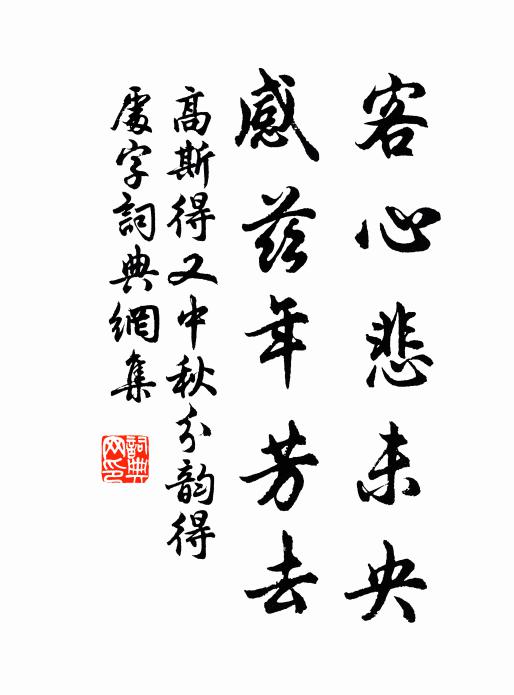 客心悲未央
感茲年芳去
高斯得又中秋分韵得
處字詞典網集
詞典
网印